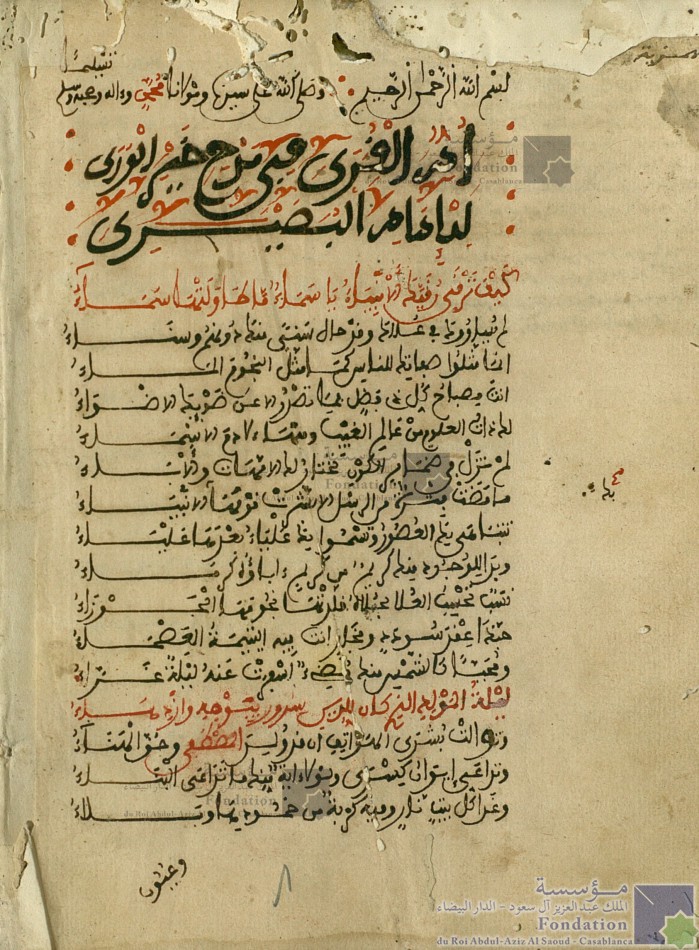 همزية
تسليما
بسم الله الرحمن الرحيم وصلى الله على سيدنا ومولانا محمد وءاله وصحبه وسلم
أم القرى في مدح خير الورى
للامام البصيري
كيف ترقى رقيك الأنبياء يا سماء ما طاولتها سماء
لم يساووك في علاك وقد حال سنى منك دونهم وسناء
انما مثلوا صفاتك للناس كما مثل النجوم الماء
انت مصباح كل فضل فما تصدر الا عن ضوئك الاضواء
لك ذات العلوم من عالم الغيب ومنها لادم الاسماء
لم تزل في ضمائر الكون تختار لك الامهات والاباء
ما مضت فترة من الرسل الا بشرت قومها الانبياء
بك صح
تتباهى بك العصور وتسموا بك علياء بعدها علياء
وبدا للوجود منك كريم من كريم ءاباؤه كرماء
نسب تحسب العلا بحلاه قلدتها نجومها الجوزاء
حبذا عقد سودد وفخار انت فيه اليتيمة العصماء
ومحيا كالشمس منك مضيء اسفرت عنه ليلة غراء
ليلة المولد الذي كان للدين سرور بيومه وازدهاء
وتوالت بشرى الهواتف ان قد ولد المصطفى وحق الهناء
وتداعى ايوان كسرى ولولا اية منك ما تداعى البناء
وغدا كل بيت نار وفيه كربة من خمودها وبلاء
وعيون
مؤسسة
الملك عبد العزيز آل سعود - الدار البيضاء
Fondation
du Roi Abdul-Aziz Al Saoud - Casablanca